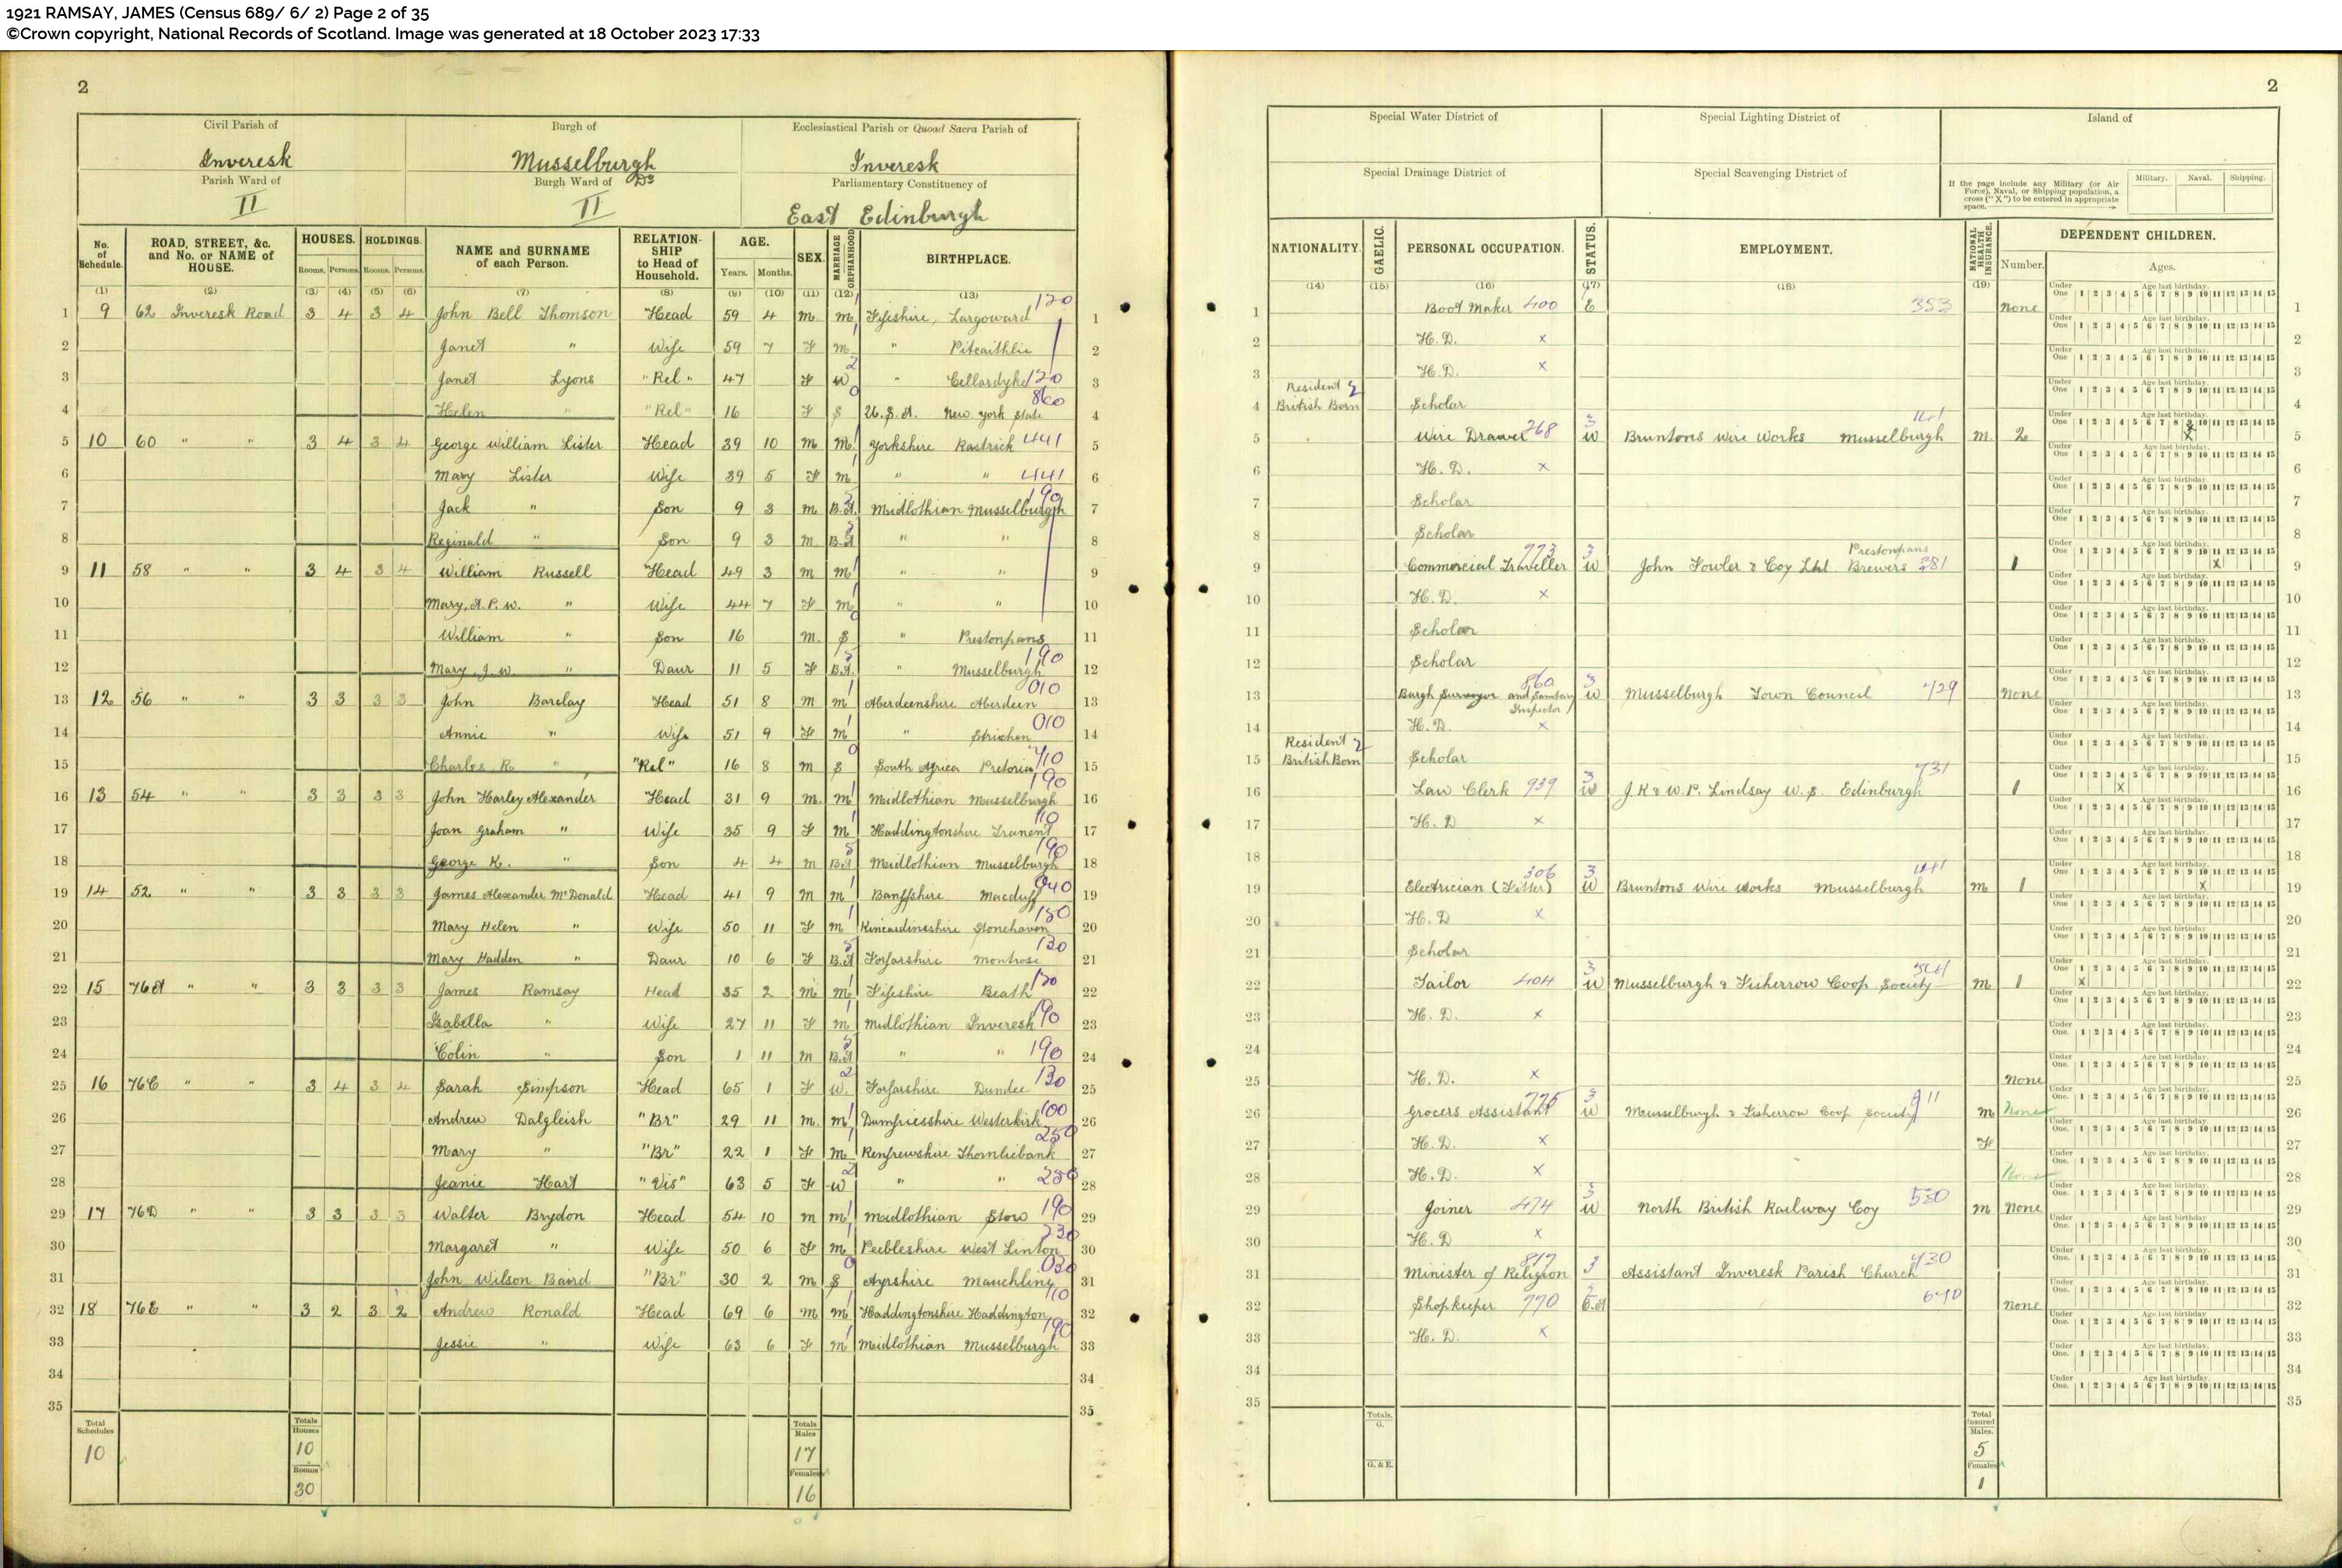 1921 RAMSAY, JAMES (Census 689/ 6/ 2) Page 2 of 35
©Crown copyright, National Records of Scotland. Image was generated at 18 October 2023 17:33
2
Civil Parish of Burgh of Ecclesiastical Parish or Quoad Sacra Parish of
Inveresk Musselburgh Inveresk
Parish Ward of Burgh Ward of Parliamentary Constituency of
II II East Edinburgh
No. of Schedule. ROAD, STREET, &c. and No. or NAME of HOUSE. HOUSES. HOLDINGS. NAME and SURNAME of each Person. RELATIONSHIP to Head of Household. AGE. SEX. MARRIAGE ORPHANHOOD BIRTHPLACE.
Rooms. Persons. Rooms. Persons. Years. Months.
(1) (2) (3) (4) (5) (6) (7) (8) (9) (10) (11) (12) (13)
1 9 62 Inveresk Road 3 4 3 4 John Bell Thomson Head 59 4 M. M Fifeshire, Largoward 120 1
2 Janet " Wife 59 7 F M " Pitcaithlie 2
3 Janet Lyons "Rel" 47 F W " Cellardyke 120 3
4 Helen " "Rel" 16 F S U.S.A. New York State 860 4
5 10 60 " " 3 4 3 4 George William Lister Head 39 10 M M Yorkshire Rastrick 441 5
6 Mary Lister Wife 39 5 F M " " 441 6
7 Jack " Son 9 3 M B.A. Midlothian Musselburgh 190 7
8 Reginald " Son 9 3 M B.A " " 8
9 11 58 " " 3 4 3 4 William Russell Head 49 3 M M " " 9
10 Mary, A. P. W. " Wife 44 7 F M " " 10
11 William " Son 16 M. S " Prestonpans 11
12 Mary J. W " Daur 11 5 F B.A. " Musselburgh 190 12
13 12 56 " " 3 3 3 3 John Barclay Head 51 8 M M Aberdeenshire Aberdeen 010 13
14 Annie " Wife 51 9 F M " Strichen 010 14
15 Charles R. " "Rel" 16 8 M S South Africa Pretoria 710 15
16 13 54 " " 3 3 3 3 John Harley Alexander Head 31 9 M. M Midlothian Musselburgh 190 16
17 Joan Graham " Wife 35 9 F M Haddingtonshire Tranent 110 17
18 George K. " Son 4 4 M B.A Midlothian Musselburgh 190 18
19 14 52 " " 3 3 3 3 James Alexander McDonald Head 41 9 M M Banffshire Macduff 040 19
20 Mary Helen " Wife 50 11 F M Kincardineshire Stonehaven 150 20
21 Mary Hadden " Daur 10 6 F B.A Forfarshire Montrose 130 21
22 15 76A " " 3 3 3 3 James Ramsay Head 35 2 M M Fifeshire Beath 120 22
23 Isabella " Wife 27 11 F M Midlothian Inveresk 190 23
24 Colin " Son 1 11 M B.A " " 190 24
25 16 76C " " 3 4 3 4 Sarah Simpson Head 65 1 F W. Forfarshire Dundee 130 25
26 Andrew Dalgleish "Br" 29 11 M. M Dumfriesshire Westerkirk 100 26
27 Mary " "Br" 22 1 F M Renfrewshire Thornliebank 250 27
28 Jeanie Hart "Vis" 63 5 F W " " 250 28
29 17 76D " " 3 3 3 3 Walter Brydon Head 54 10 M M Midlothian Stow 190 29
30 Margaret " Wife 50 6 F M Peebleshire West Linton 230 30
31 John Wilson Baird "Br" 30 2 M S Ayrshire Mauchline 030 31
32 18 76E " " 3 2 3 2 Andrew Ronald Head 69 6 M M Haddingtonshire Haddington 110 32
33 Jessie " Wife 63 6 F M Midlothian Musselburgh 190 33
34 34
35 35
Total Schedules 10 Totals Houses 10 Rooms 30 Totals Males 17 Females 16
2
Special Water District of Special Lighting District of Island of
Special Drainage District of Special Scavenging District of
If the page include any Military (or Air Force), Naval, or Shipping population, a cross ("X") to be entered in appropriate space. Military. Naval. Shipping.
NATIONALITY. GAELIC. PERSONAL OCCUPATION. STATUS. EMPLOYMENT. NATIONAL HEALTH INSURANCE. DEPENDENT CHILDREN.
Number. Ages.
(14) (15) (16) (17) (18) (19)
Under One Age last birthday. 1 2 3 4 5 6 7 8 9 10 11 12 13 14 15
1 Boot Maker 400 E 353 None 1
2 H.D. x 2
3 H.D. x 3
4 Resident British Born Scholar 4
5 Wire Drawer 268 W Bruntons Wire Works Musselburgh 141 M. 2 5
6 H.D. x 6
7 Scholar 7
8 Scholar 8
9 Commercial Traveller 773 W John Fowler & Coy Ltd. Brewers Prestonpans 381 1 x 9
10 H.D. x 10
11 Scholar 11
12 Scholar 12
13 Burgh Surveyor and Sanitary Inspector 860 W Musselburgh Town Council 729 None 13
14 H.D. x 14
15 Resident British Born Scholar 15
16 Law Clerk 939 W J.K & W.P. Lindsay W.S. Edinburgh 731 1 x 16
17 H.D x 17
18 18
19 Electrician (Fitter) 306 W Bruntons Wire Works Musselburgh 141 M 1 x 19
20 H.D x 20
21 Scholar 21
22 Tailor 404 W Musselburgh & Fisherrow Coop Society M 1 x 22
23 H.D. x 23
24 24
25 H.D. x None 25
26 Grocers Assistant 775 W Musselburgh & Fisherrow Coop Society 911 M None 26
27 H.D. x F 27
28 H.D. x None 28
29 Joiner 474 W North British Railway Coy 550 M None 29
30 H.D x 30
31 Minister of Religion 817 3 Assistant Inveresk Parish Church 730 31
32 Shopkeeper 770 640 None 32
33 H.D. x 33
34 34
35 35
Totals. G. G. & E. Total Insured Males. 5 Females 1